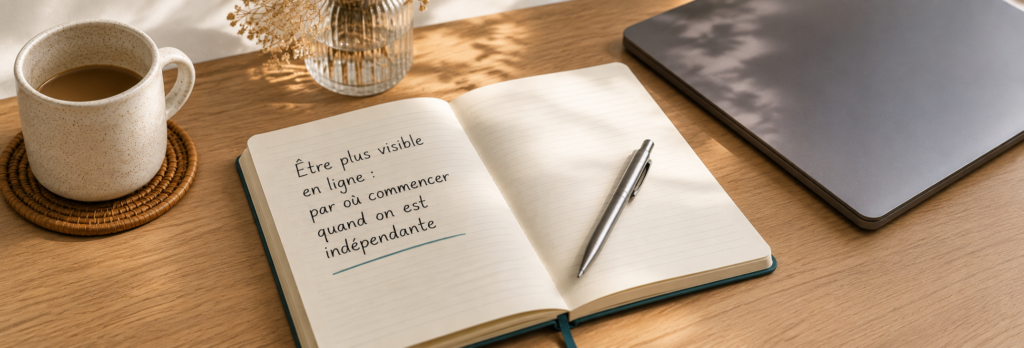 Être plus visible
en ligne :
par où commencer
quand on est
indépendante